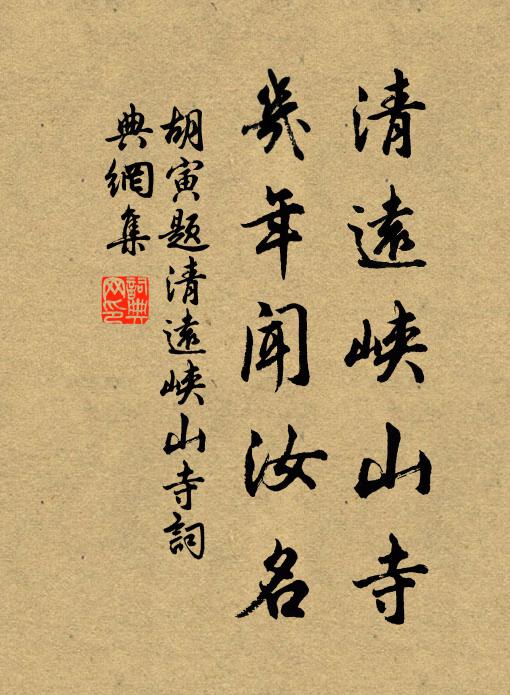 清遠峽山寺
幾年聞汝名
胡寅題清遠峽山寺詞
典網集
詞典網印